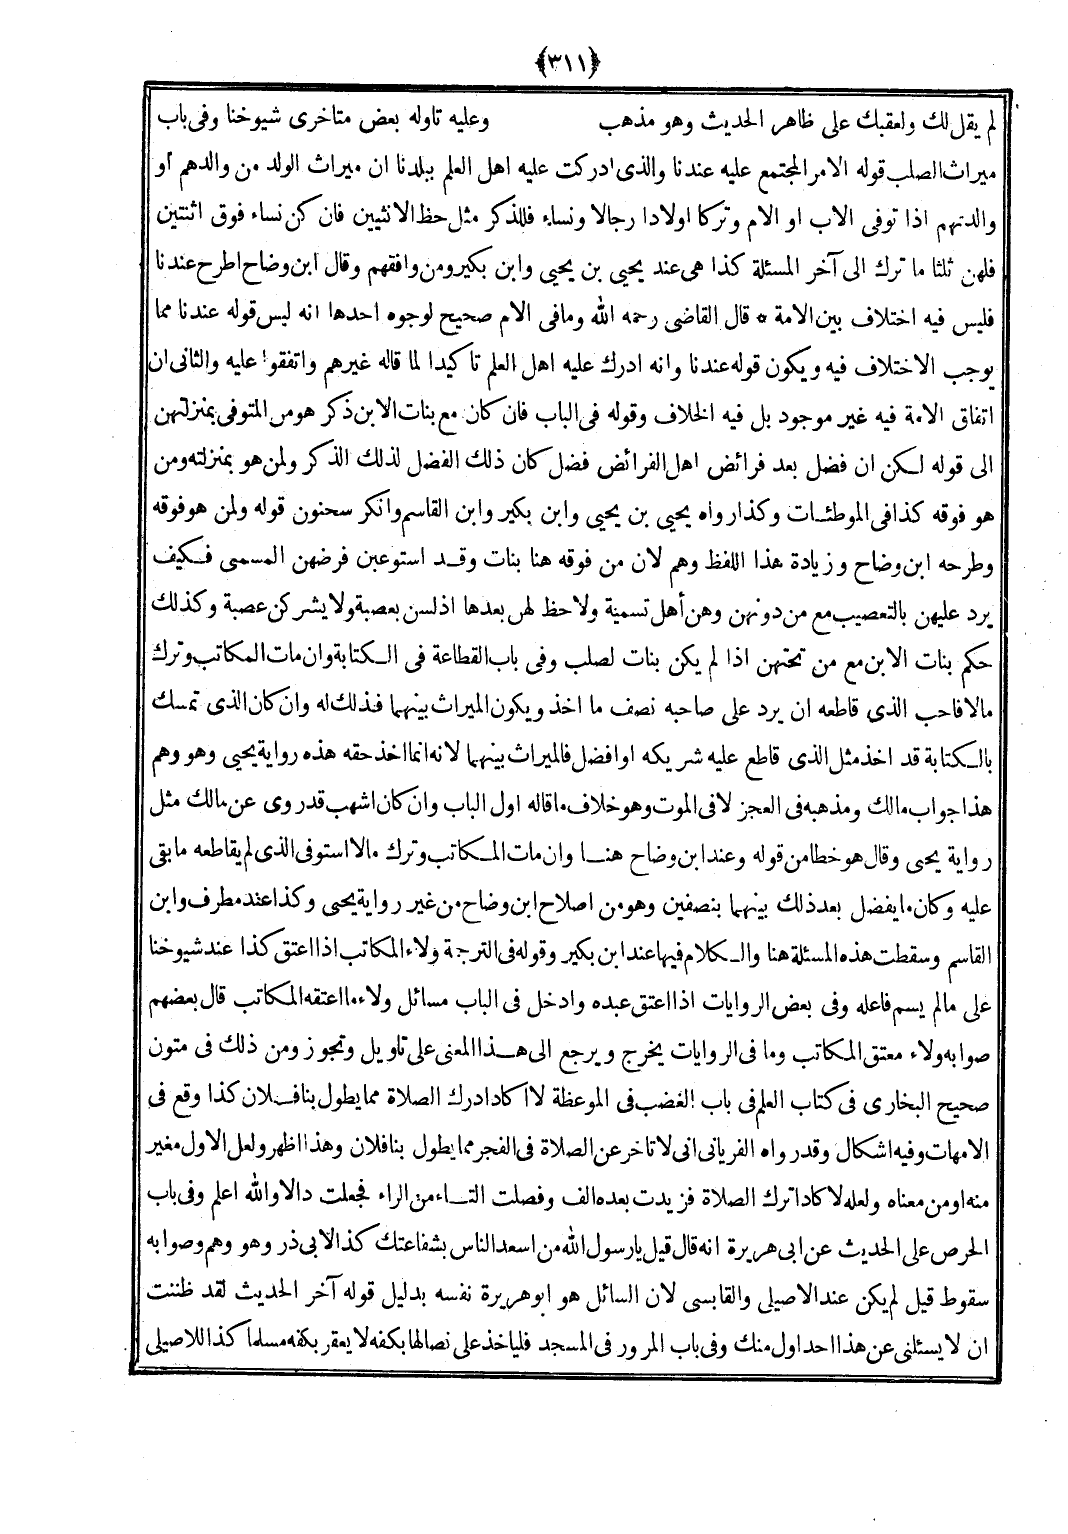 ﴿٣١١﴾
لم يقل لك ولعقبك على ظاهر الحديث وهو مذهب وعليه تاوله بعض متاخرى شيوخنا وفى باب
ميراث الصلب قوله الامر المجتمع عليه عندنا والذى ادركت عليه اهل العلم ببلدنا ان ميراث الولد من والدهم أو
والدتهم اذا توفى الاب او الام وتركا اولادا رجالا ونساء فللذكر مثل حظ الانثيين فان كن نساء فوق اثنتين
فلهن ثلثا ما ترك الى آخر المسئلة كذا هى عند يحيى بن يحيى وابن بكير ومن وافقهم وقال ابن وضاح اطرح عندنا
فليس فيه اختلاف بين الامة * قال القاضى رحمه الله وما فى الام صحيح لوجوه احدها انه ليس قوله عندنا مما
يوجب الاختلاف فيه ويكون قوله عندنا وانه ادرك عليه اهل العلم تاكيدا لما قاله غيرهم واتفقوا عليه والثانى ان
اتفاق الامة فيه غير موجود بل فيه الخلاف وقوله فى الباب فان كان مع بنات الابن ذكر هو من المتوفى بمنزلتهن
الى قوله لكن ان فضل بعد فرائض اهل الفرائض فضل كان ذلك الفضل لذلك الذكر ولمن هو بمنزلته ومن
هو فوقه كذا فى الموطئات وكذا رواه يحيى بن يحيى وابن بكير وابن القاسم وانكر سحنون قوله ولمن هو فوقه
وطرحه ابن وضاح وزيادة هذا اللفظ وهم لان من فوقه هنا بنات وقد استوعبن فرضهن المسمى فكيف
يرد عليهن بالتعصيب مع من دونهن وهن أهل تسمية ولاحظ لهن بعدها اذ لسن بعصبة ولا يشركن عصبة وكذلك
حكم بنات الابن مع من تحتهن اذا لم يكن بنات لصلب وفى باب القطاعة فى الكتابة وان مات المكاتب وترك
مالا فاحب الذى قاطعه ان يرد على صاحبه نصف ما اخذ ويكون الميراث بينهما فذلك له وان كان الذى تمسك
بالكتابة قد اخذ مثل الذى قاطع عليه شريكه او افضل فالميراث بينهما لانه انما اخذ حقه هذه رواية يحيى وهو وهم
هذا جواب مالك ومذهبه فى العجز لا فى الموت وهو خلاف ما قاله اول الباب وان كان اشهب قد روى عن مالك مثل
رواية يحيى وقال هو خطا من قوله وعند ابن وضاح هنا وان مات المكاتب وترك مالا استوفى الذى لم يقاطعه ما بقى
عليه وكان ما يفضل بعد ذلك بينهما بنصفين وهو من اصلاح ابن وضاح من غير رواية يحيى وكذا عند مطرف وابن
القاسم وسقطت هذه المسئلة هنا والكلام فيها عند ابن بكير وقوله فى الترجة ولاء المكاتب اذا اعتق كذا عند شيوخنا
على ما لم يسم فاعله وفى بعض الروايات اذا اعتق عبده وادخل فى الباب مسائل ولاء ما اعتقه المكاتب قال بعضهم
صوابه ولاء معتق المكاتب وما فى الروايات يخرج ويرجع الى هذا المعنى على تاويل وتجوز ومن ذلك فى متون
صحيح البخارى فى كتاب العلم فى باب الغضب فى الموعظة لا اكاد ادرك الصلاة مما يطول بنا فلان كذا وقع فى
الامهات وفيه اشكال وقد رواه الفريانى انى لا تاخر عن الصلاة فى الفجر مما يطول بنا فلان وهذا اظهر ولعل الاول مغير
منه او من معناه ولعله لا كاد اترك الصلاة فزيدت بعده الف وفصلت التاء من الراء فجعلت دالا والله اعلم وفى باب
الحرص على الحديث عن ابى هريرة انه قال قيل يا رسول الله من اسعد الناس بشفاعتك كذا لابى ذر وهو وهم وصوابه
سقوط قيل لم يكن عند الاصيلى والقابسى لان السائل هو ابو هريرة نفسه بدليل قوله آخر الحديث لقد ظننت
ان لا يسئلنى عن هذا احد اول منك وفى باب المرور فى المسجد فلياخذ على نصالها بكفه لا يعقر بكفه مسلما كذا للاصيلى